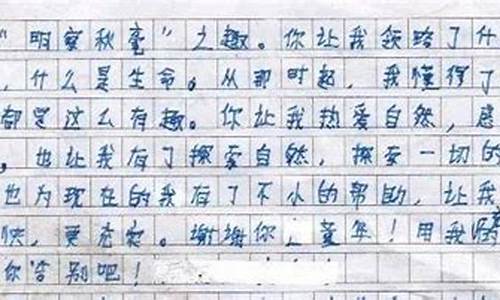 "明察秋毫"之趣。你让我领略了什
，什么是生命。从那时起，我懂得了
都是这么有趣。你让我热爱自然，感
，也让我有了探索自然，探索一切的
也为现在的我有了不小的帮助，让我
快，更充实。谢谢你，童年！用我
你告别吧！